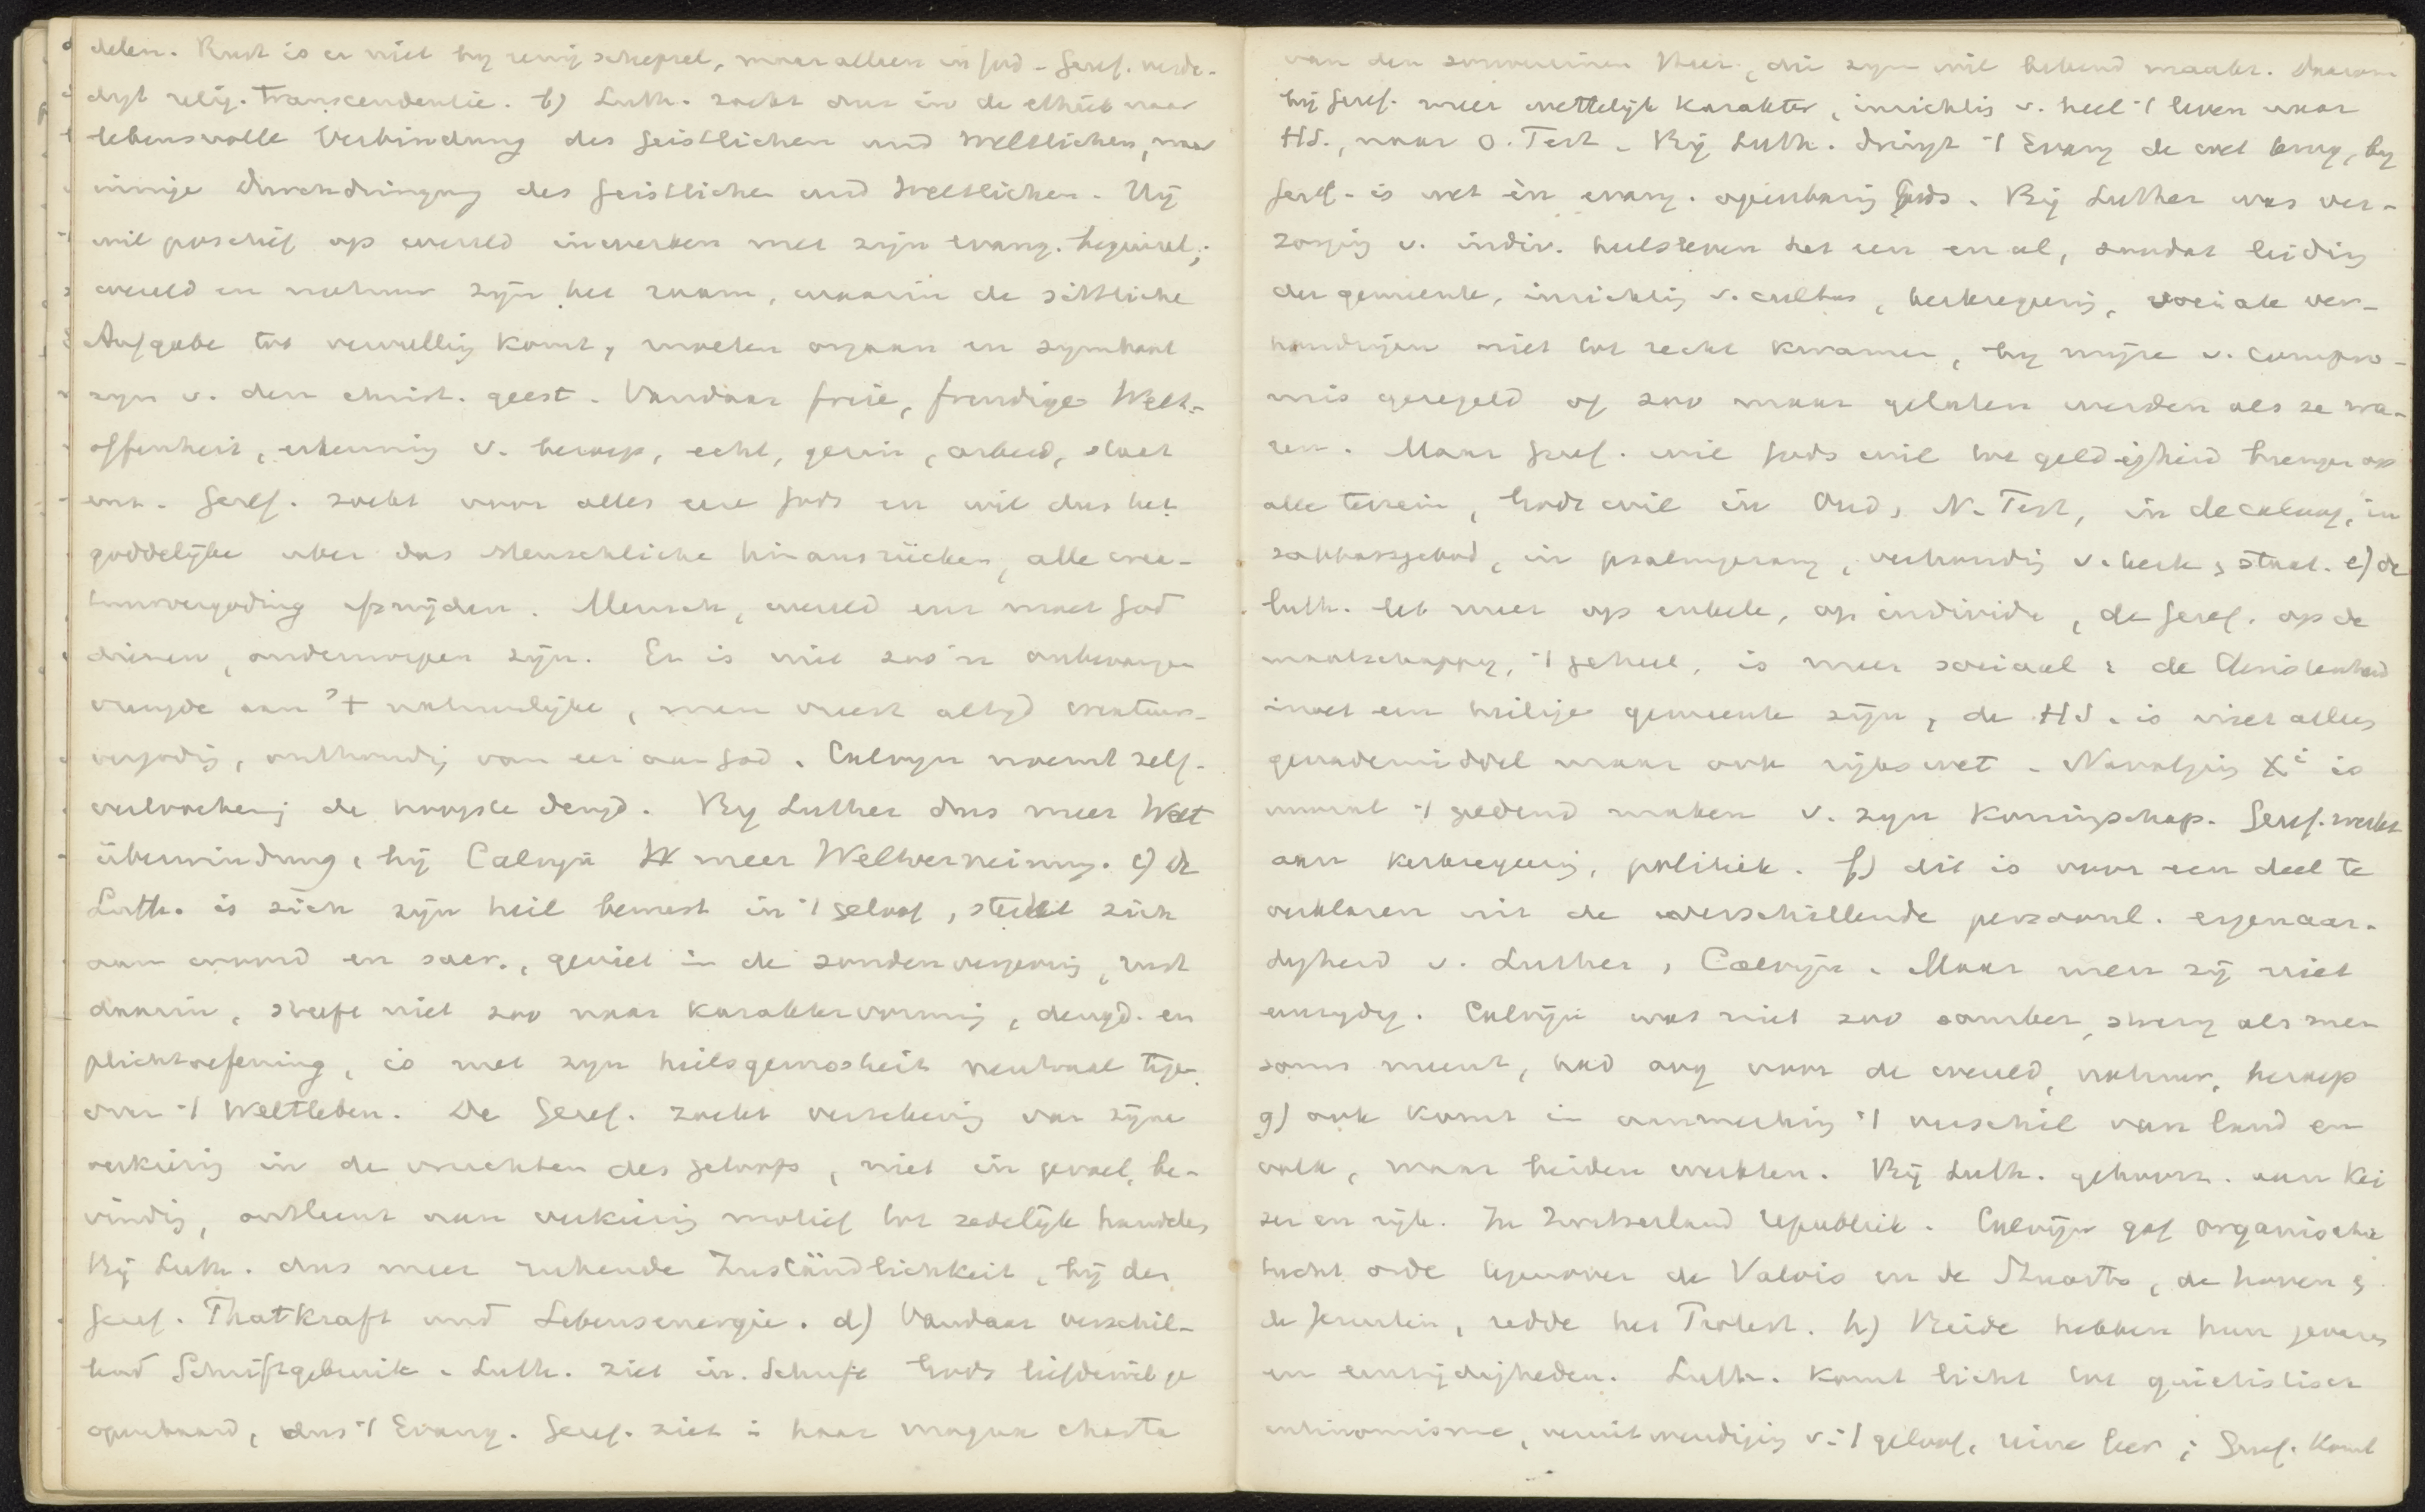 delen. Rust is er niet bij eenig schepsel, maar alleen in God. Geref. verde-
digt relig. transcendentie. b) Luth. zoekt dus in de ethiek naar
lebensvolle Verbindung des Geistlichen und Weltlichen, naar
innige Durchdringung des Geistlichen und Weltlichen. Hij
wil positief op wereld inwerken met zijn evang. beginsel;
wereld en natuur zijn het raam, waarin de sittliche
Aufgabe tot vervulling komt, moeten orgaan en symbool
zijn v. den christ. geest. Vandaar freie, freudige Welt-
offenheit, erkenning v. beroep, echt, gezin, arbeid, staat
enz. Geref. zoekt voor alles eere Gods en wil dus het
goddelijke über das Menschliche hinausrücken, alle crea-
tuurvergoding snijden. Mensch, wereld enz moet God
dienen, onderworpen zijn. Er is niet zoo'n onbevangen
vreugde aan 't natuurlijke, men vreest altijd creatuur-
vergodig, onthoudig van eer aan God. Calvijn noemt zelf-
verloochening de hoogste deugd. Bij Luther dus meer Welt
überwindung, bij Calvijn meer Weltverneinung. c) de
Luth. is zich zijn heil bewust in 't geloof, stelt zich
aan woord en sacr., geniet in de zondenvergeving, rust
daarin, streeft niet zoo naar karaktervorming, deugd- en
plichtoefening, is met zijn heilsgewissheit neutraal tegen
over 't Weltleben. De Geref. zoekt verzekering van zijne
verkiezing in de vruchten des geloofs, niet in gevoel, be-
vinding, ontleent aan verkiezing motief tot zedelijk handelen
Bij Luth. dus meer ruhende Zuständlichkeit, bij den
Geref. Thatkraft und Lebensenergie. d) Vandaar verschil-
lend Schriftgebruik. Luth. ziet in Schrift Gods liefdewil ge
openbaard, dus 't Evang. Geref. ziet in haar magna charta
van den souvereinen Heer, die zijn wil bekend maakt. Daarom
bij Geref. meer wettelijk karakter, inrichting v. heel 't leven naar
HS., naar O. Test. Bij Luth. dringt 't Evang de wet terug, bij
Geref. is wet èn evang. openbaring Gods. Bij Luther was ver-
zorging v. indiv. heilsleven het een en al, zoodat leiding
der gemeente, inrichting v. cultus, kerkregering, sociale ver-
houdingen niet tot recht kwamen, bij wijze v. compro-
mis geregeld of zoo maar gelaten werden als ze wa-
ren. Maar Geref. wil Gods wil tot geldigheid brengen op
alle terrein, Gods wil in Oud, N. Test, in decaloog, in
sabbatsgebod, in psalmgezang, verhouding v. kerk, staat. e) de
luth. let meer op enkele, op individu, de Geref. op de
maatschappij, 't geheel, is meer sociaal; de Christenheid
moet een heilige gemeente zijn, de HS. is niet alleen
genademiddel maar ook rijkswet. Navolging X^i is
vooral 't geldend maken v. zijn koningschap. Geref. werkt
aan kerkregeering, politiek. f) dit is voor een deel te
verklaren uit de verschillende persoonl. eigenaar-
digheid v. Luther, Calvijn. Maar men zij niet
eenzijdig. Calvijn was niet zoo somber, streng als men
soms meent, had oog voor de wereld, natuur, beroep
g) ook komt in aanmerking 't verschil van land en
volk, waar beiden werkten. Bij Luth. gehoorz. aan Kei
zer en rijk. In Zwitserland republiek. Calvijn gaf organische
tucht orde tegenover de Valois en de Stuarts, de hoven &
de Jezuïten, redde het Protest. h) Beide hebben hun gevaren
en eenzijdigheden. Luth. komt licht tot quiëtistisch
antinomisme, veruitwendiging v. 't geloof, reine leer; Geref. komt